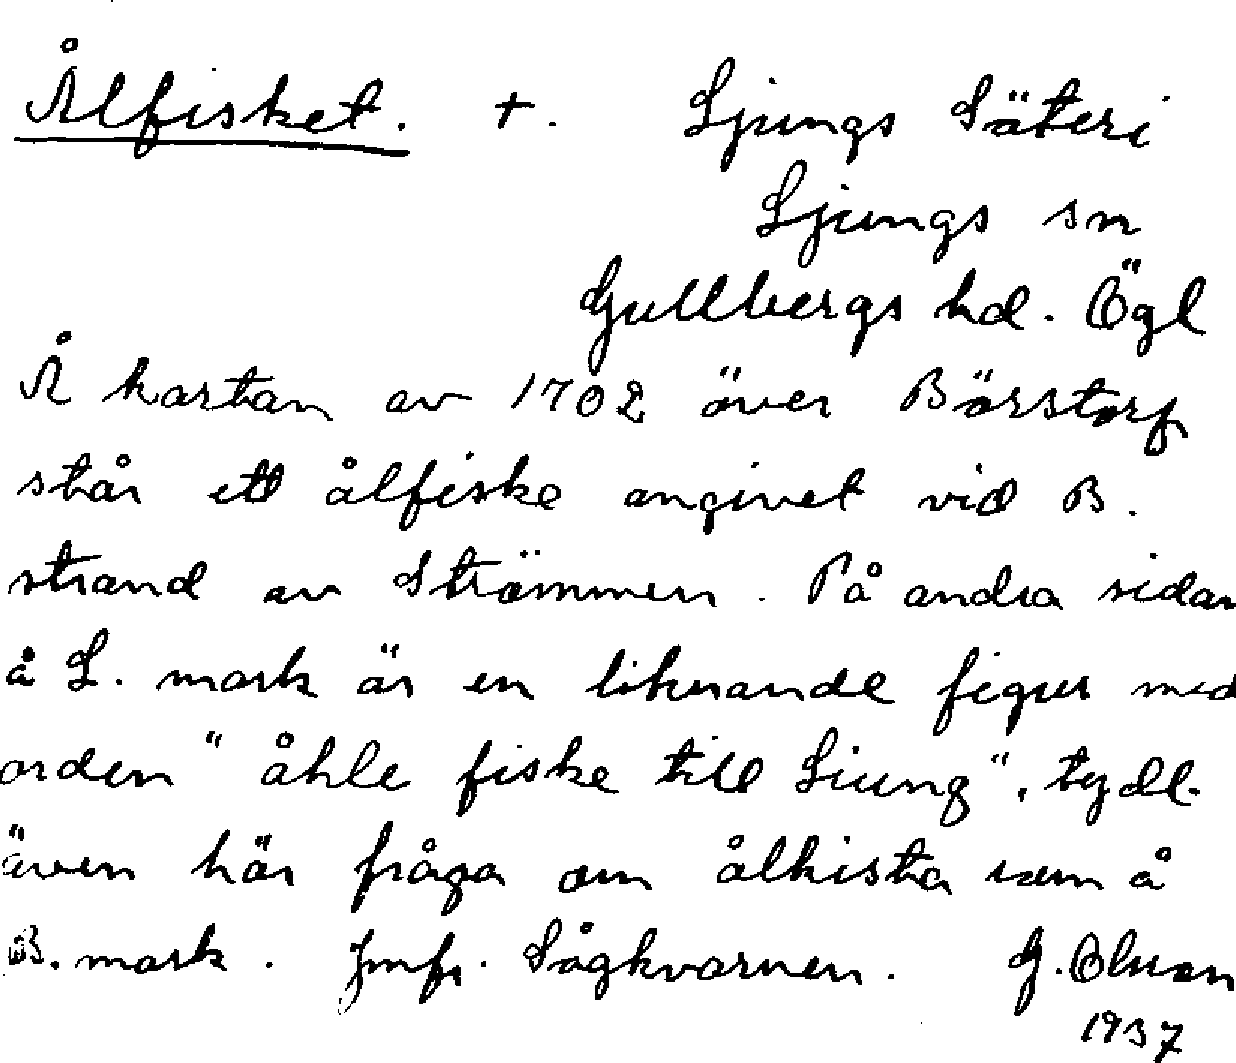 Ålfisket. +. Ljungs Säteri
Ljungs sn
Gullbergs hd. Ögl
Å kartan av 1702 över Börstorp
står ett ålfiske angivet vid B.
strand av Strömmen. På andra sidan
å L. mark är en liknande figur med
orden "åhle fiske till Liung", tydl.
även här fråga om ålkista som å
B. mark. Jmfr. Sågkvarnen. G. Olsson
1937